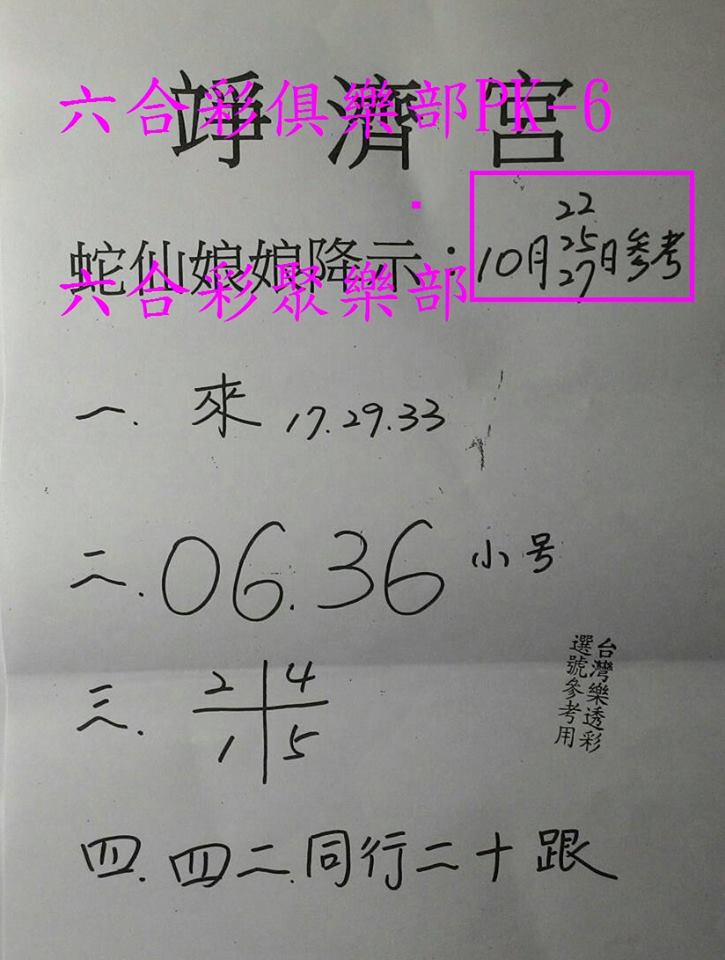 六合彩俱樂部PK-6
竫濟宮
蛇仙娘娘降示：10月22 25 27日參考
六合彩聚樂部
一. 來 17.29.33
二. 06.36 小号
三. 2 4
1 5
台灣樂透彩
選號參考用
四. 四二.同行二十跟